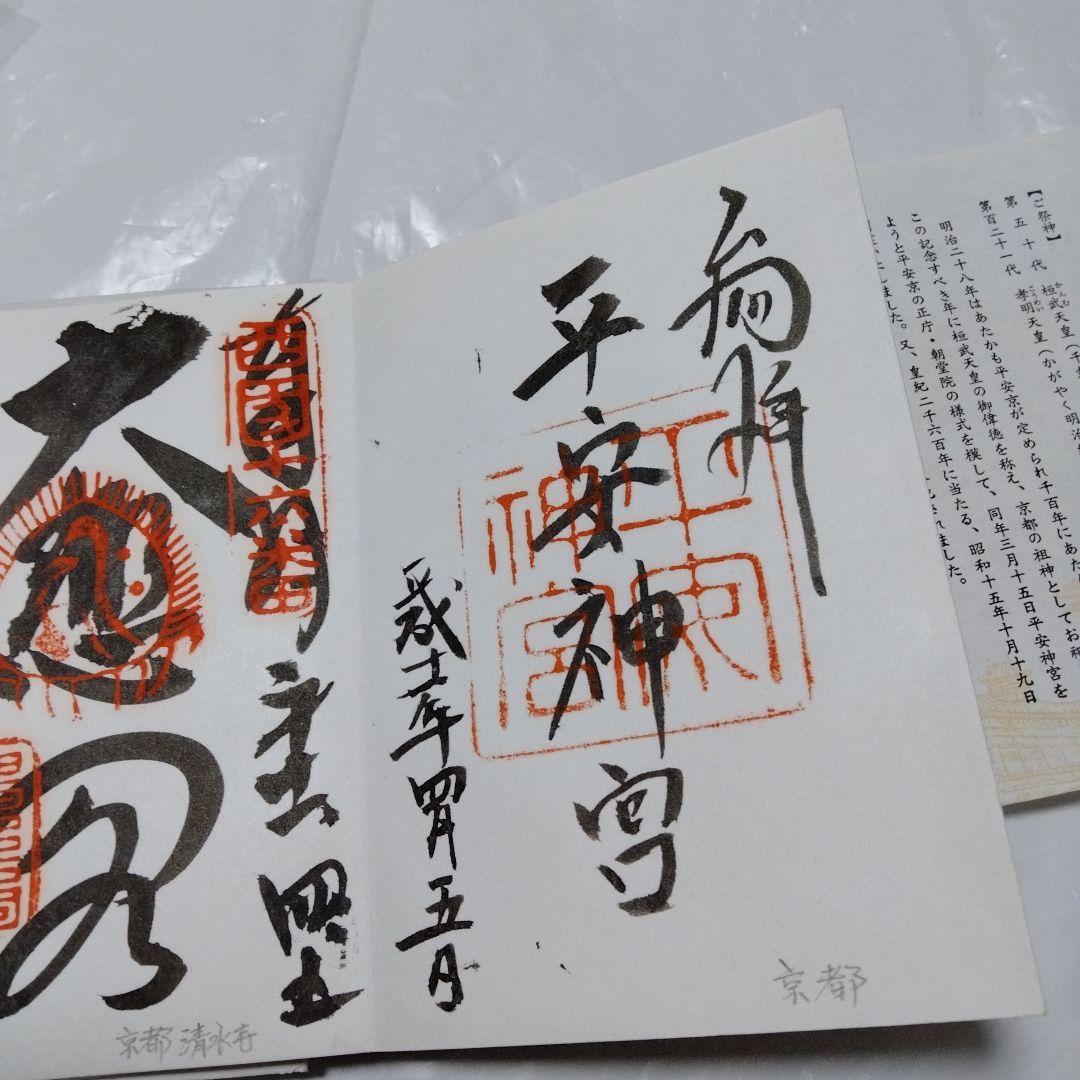 【ご祭神】
第五十代 桓武天皇（千
かんむ
第百二十一代 孝明天皇（かがやく明治
こうめい
明治二十八年はあたかも平安京が定められ千百年にあた
この記念すべき年に桓武天皇の御偉徳を称え、京都の祖神としてお祀
ようと平安京の正庁・朝堂院の様式を模して、同年三月十五日平安神宮を
しました。又、皇紀二千六百年に当たる、昭和十五年十月十九日
れました。
奉拝
平安神宮
平安神宮
京都
西国十六番
大悲閣
京都 清水寺